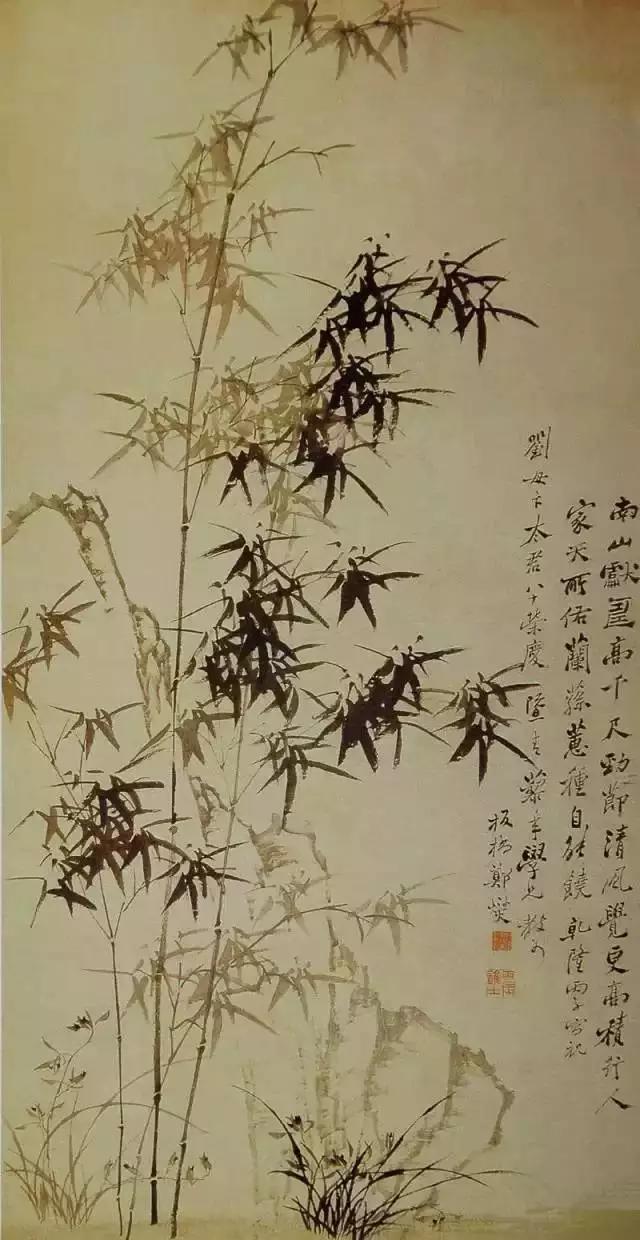 南山獻壽高千尺勁節清風覺更高積行人
家天所佑蘭蓀蕙種自能饒乾隆丙子寫祝
劉母卞太君八十榮慶暨青藜年學兄教
板橋鄭燮
丙辰進士